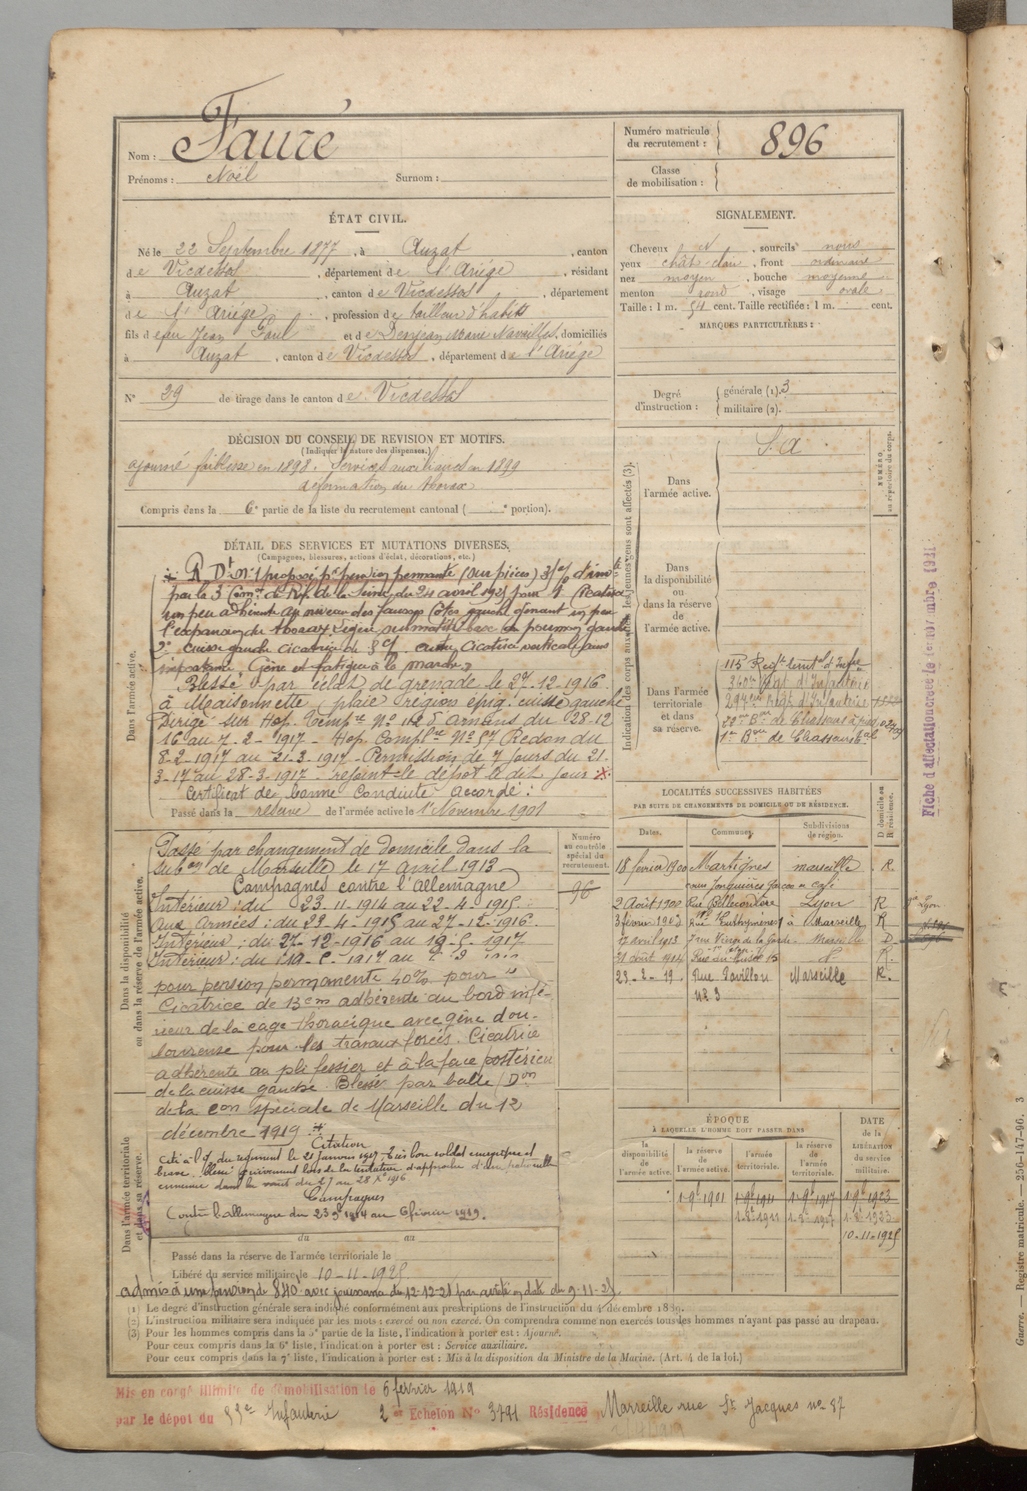 Nom : Fauré
Prénoms : Noël Surnom :
Numéro matricule du recrutement : 896
Classe de mobilisation :
ÉTAT CIVIL.
Né le 22 Septembre 1877, à Auzat, canton
de Vicdessos, département de l'Ariège, résidant
à Auzat, canton de Vicdessos, département
de l'Ariège, profession de tailleur d'habits
fils de feu Jean Paul et de Dexjean Marie, domiciliés
à Auzat, canton de Vicdessos, département de l'Ariège
N° 29 de tirage dans le canton de Vicdessos
SIGNALEMENT.
Cheveux N, sourcils noirs
yeux chât clair, front ordinaire
nez moyen, bouche moyenne
menton rond, visage ovale
Taille : 1 m. 51 cent. Taille rectifiée : 1 m. cent.
MARQUES PARTICULIÈRES :
Degré d'instruction : générale (1). 3
militaire (2).
DÉCISION DU CONSEIL DE REVISION ET MOTIFS.
(Indiquer la nature des dispenses.)
ajourné faiblesse en 1898. Services auxiliaires en 1899
déformation du thorax
Compris dans la 6e partie de la liste du recrutement cantonal ( e portion).
DÉTAIL DES SERVICES ET MUTATIONS DIVERSES.
(Campagnes, blessures, actions d'éclat, décorations, etc.)
Dans l'armée active.
par la 3 de la Seine du 24 avril 1921 pour 1
un peu adhérente au niveau des fausses côtes gauche
l'expansion du thorax
2° cuisse gauche cicatrice de
importance Gêne et fatigue à la marche
Blessé par éclat de grenade le 27-12-1916
à Maisonnette, plaie région épig. cuisse gauche
Dirigé sur Hop. Temp.re N° 112 d'Amiens du 28-12
16 au 7-2-1917 - Hop. Compl.re N° 57 Redon du
8-2-1917 au 21-3-1917 - Permission de 7 jours du 21.
3-17 au 28-3-1917 - rejoint le dépôt le dit jour
Certificat de bonne Conduite accordé :
Passé dans la réserve de l'armée active le 1er Novembre 1901
Dans la disponibilité ou dans la réserve de l'armée active.
Numéro au contrôle spécial du recrutement.
96
Passé par changement de domicile dans la
subon de Marseille le 17 avril 1913
Campagnes contre l'allemagne
Intérieur : du 23.11.1914 au 22-4-1915.
Aux Armées : du 23-4-1915 au 27-12-1916.
Intérieur : du 27-12-1916 au 19-5-1917
Intérieur : du 19-5-1917 au
pour pension permanente 40% pour "
Cicatrice de 13cm adhérente au bord infé-
rieur de la cage thoracique avec gêne dou-
loureuse pour les travaux forcés. Cicatrice
adhérente au pli fessier et à la face postérieu
de la cuisse gauche. Blessé par balle (Don
de la Con Spéciale de Marseille du 12
décembre 1919
Dans l'armée territoriale et dans sa réserve.
Citation
Cité à l'O/ du régiment le 21 janvier 1917 Très bon soldat énergique et
brave, blessé grièvement lors de la tentative d'approche d'une patrouille
ennemie dans la nuit du 27 au 28 Xbre 1916
Campagnes
Contre l'allemagne du 23 9bre 1914 au 6 février 1919.
du au
Passé dans la réserve de l'armée territoriale le
Libéré du service militaire le 10-11-1925
admis à une pension de 840f avec jouissance du 12-12-21 par arrêté en date du 9-11-21
Indication des corps auxquels les jeunes gens sont affectés (3).
NUMÉRO au répertoire du corps.
Dans l'armée active.
S. A.
Dans la disponibilité ou dans la réserve de l'armée active.
Dans l'armée territoriale et dans sa réserve.
115 Regt territal d'Infie
360me Regt d'Infanterie
294me regt d'Infanterie
22me Bon de Chasseurs à pied
1er Bon de Chasseurs
LOCALITÉS SUCCESSIVES HABITÉES
PAR SUITE DE CHANGEMENTS DE DOMICILE OU DE RÉSIDENCE.
Dates. Communes. Subdivisions de région. D domicile ou R résidence.
18 février 1900 Martigues marseille R.
2 Août 1900 Rue Bellecordière Lyon R
3 février 1903 à Marseille R
17 avril 1913 Marseille D
31 août 1914 R.
23-2-19. Rue Pavillon Marseille R.
N° 3
ÉPOQUE
À LAQUELLE L'HOMME DOIT PASSER DANS
la disponibilité de l'armée active. la réserve de l'armée active. l'armée territoriale. la réserve de l'armée territoriale. DATE de la LIBÉRATION du service militaire.
1-9bre 1901 1-9bre 1911 1-9bre 1917 1-9bre 1923
1-8bre 1911 1-8bre 1917 1-8bre 1923
10-11-1925
(1) Le degré d'instruction générale sera indiqué conformément aux prescriptions de l'instruction du 4 décembre 1889.
(2) L'instruction militaire sera indiquée par les mots : exercé ou non exercé. On comprendra comme non exercés tous les hommes n'ayant pas passé au drapeau.
(3) Pour les hommes compris dans la 5e partie de la liste, l'indication à porter est : Ajourné.
Pour ceux compris dans la 6e liste, l'indication à porter est : Service auxiliaire.
Pour ceux compris dans la 7e liste, l'indication à porter est : Mis à la disposition du Ministre de la Marine. (Art. 4 de la loi.)
Mis en congé illimité de démobilisation le 6 février 1919
par le dépôt du 55e Infanterie 2me Echelon N° 3791 Résidence Marseille rue St Jacques no 87
Guerre. — Registre matricule. — 256-147-96. 3